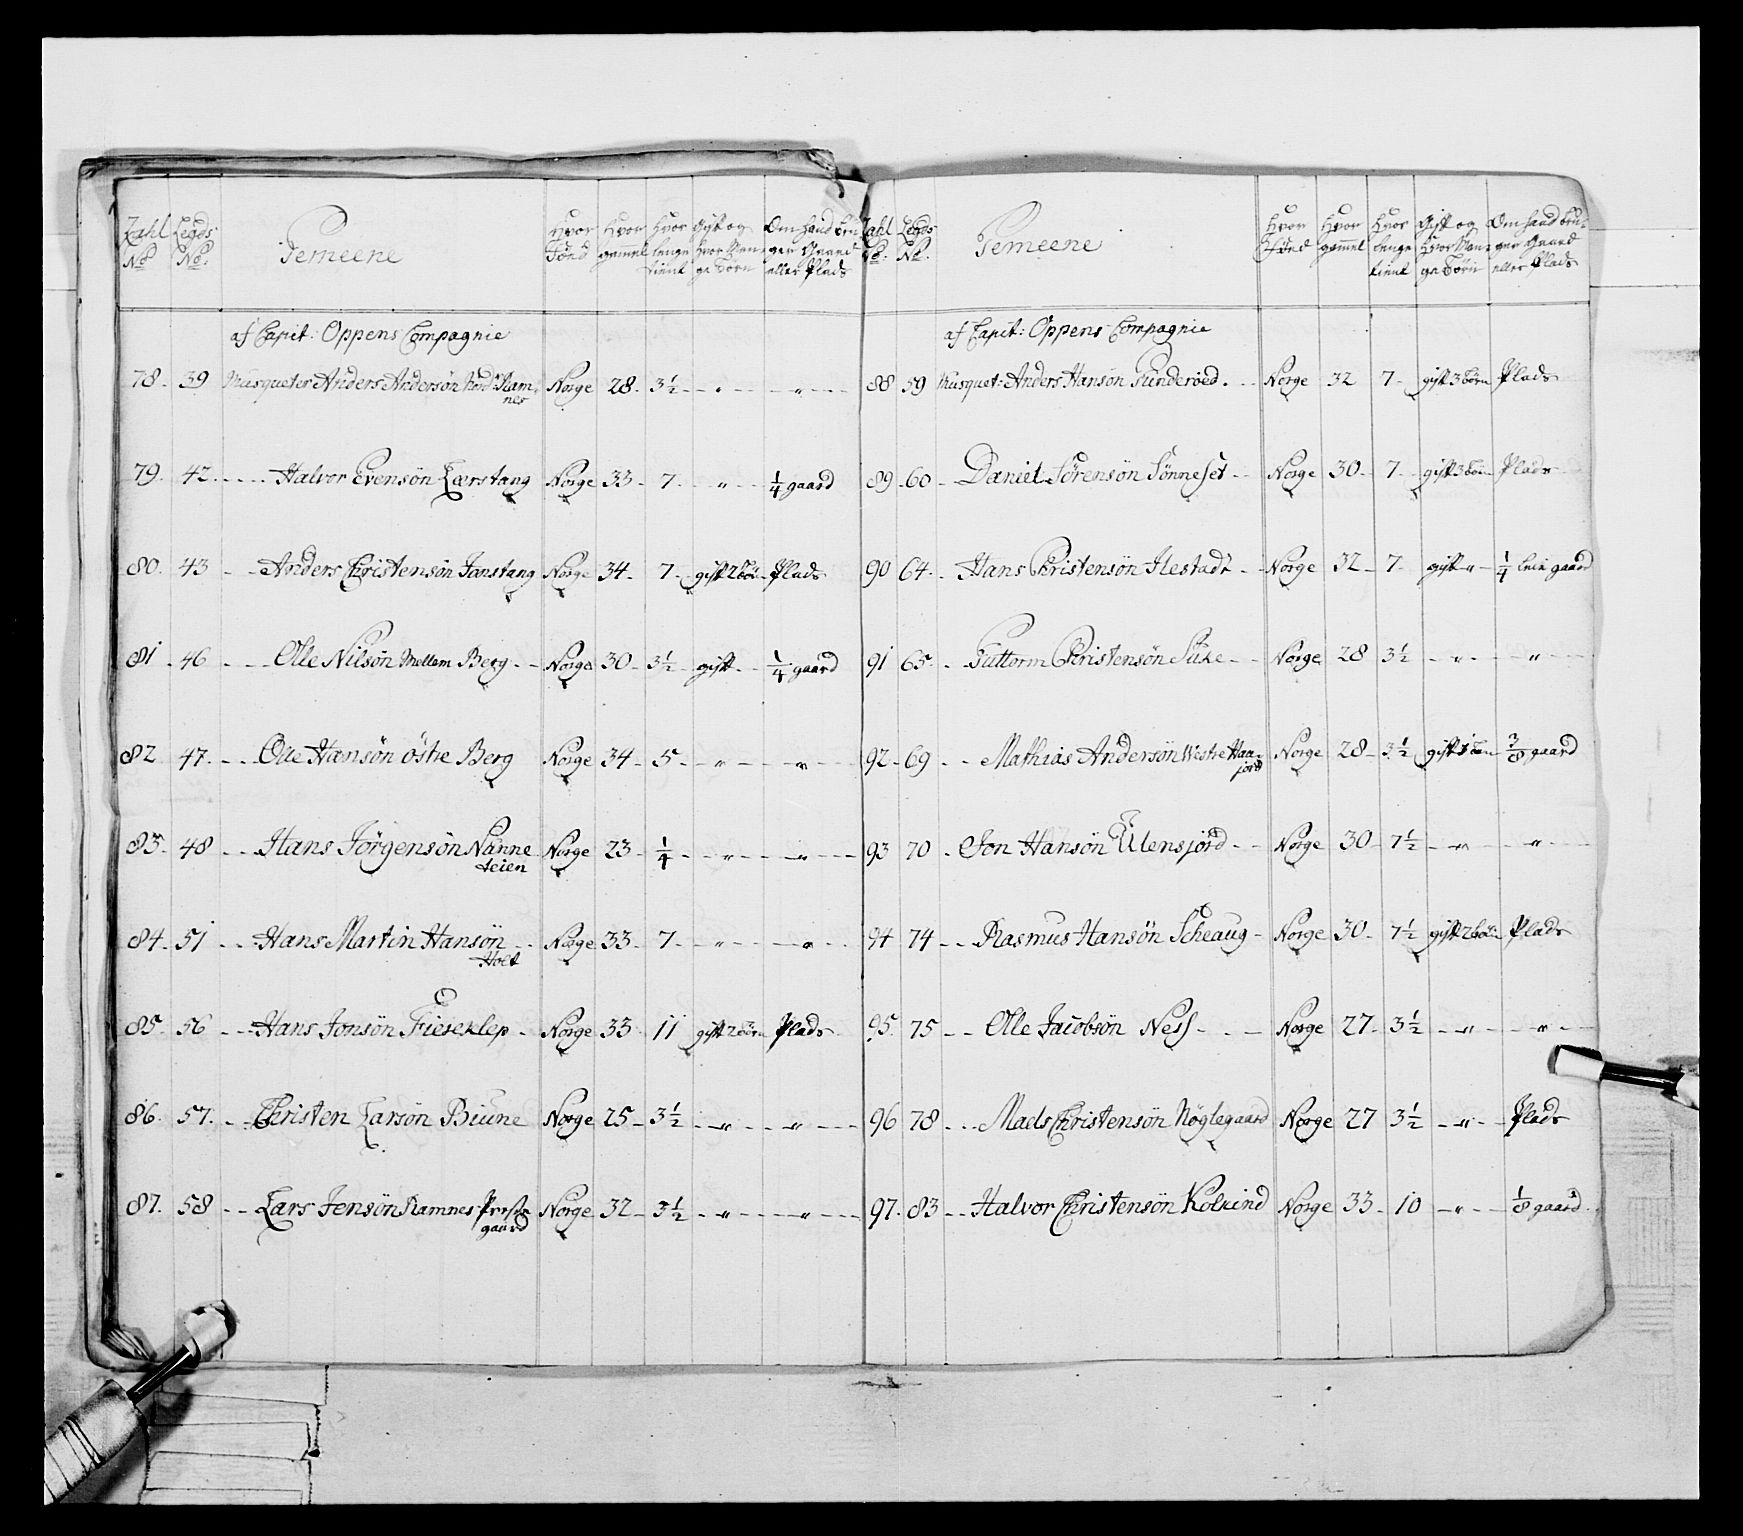 Zahl No Legds No. Gemeene Hvor Fönd Hvor gammel Hvor lenge tient Gift og Hvor Man- ge Börn Om hand bru- ger Gaard eller Plads
af Capit: Oppens Compagnie
78. 39 Musqueter Anders Andersön Nord Ram- Norge 28. 3½ - " - - " -
nes
79. 42. Halvor Evensön Lærstang Norge 33. 7. " ¼ gaard
80. 43 Anders Christensön Janstang Norge 34. 7. gift 2 börn Plads
81. 46 Olle Nilsön Mellem Berg Norge 30. 3½ gift ¼ gaard
82 47. Olle Hansön östre Berg Norge 34. 5. " "
83. 48 Hans Jörgensön Nanne Norge 23. ¼ " "
teien
84. 51 Hans Martin Hansön Norge 33. 7. " "
Holt
85. 56 Hans Jonsön Fiereklep Norge 33 11 gift 2 börn Plads
86. 57. Christen Larsön Biune Norge 25. 3½ " "
87. 58 Lars Jensön Ramnes Preste Norge 32 3½ " "
gaard
Zahl No. Legds No. Gemeene Hvor Fönd Hvor gammel Hvor lenge tient Gift og Hvor Man- ge Börn Om hand bru- ger Gaard eller Plads
af Capit: Oppens Compagnie
88 59 Musquet: Anders Hansön Gunderöed. Norge 32 7. gift 3 börn Plads
89. 60 Daniel Sörensön Sönneset Norge 30. 7. gift 3 börn Plads
90 64. Hans Christensön Ilestadt Norge 32. 7. gift " ¼ leie gaard
91 65. Guttorm Christensön Süke Norge 28 3½ " "
92. 69 Mathias Andersön Westre Haa- Norge 28. 3½ gift 1 börn ⅜ gaard
jord
93 70. Jon Hansön Ülensjord Norge 30 7½ " "
94 74 Rasmus Hansön Scheaug Norge 30. 7½ gift 2 börn Plads
95. 75 Olle Jacobsön Ness Norge 27. 3½ " "
96 78 Mads Christensön Nöglegaard Norge 27 3½ " Plads
97. 83 Halvor Christensön Kolkind Norge 33. 10 " ⅛ gaard.